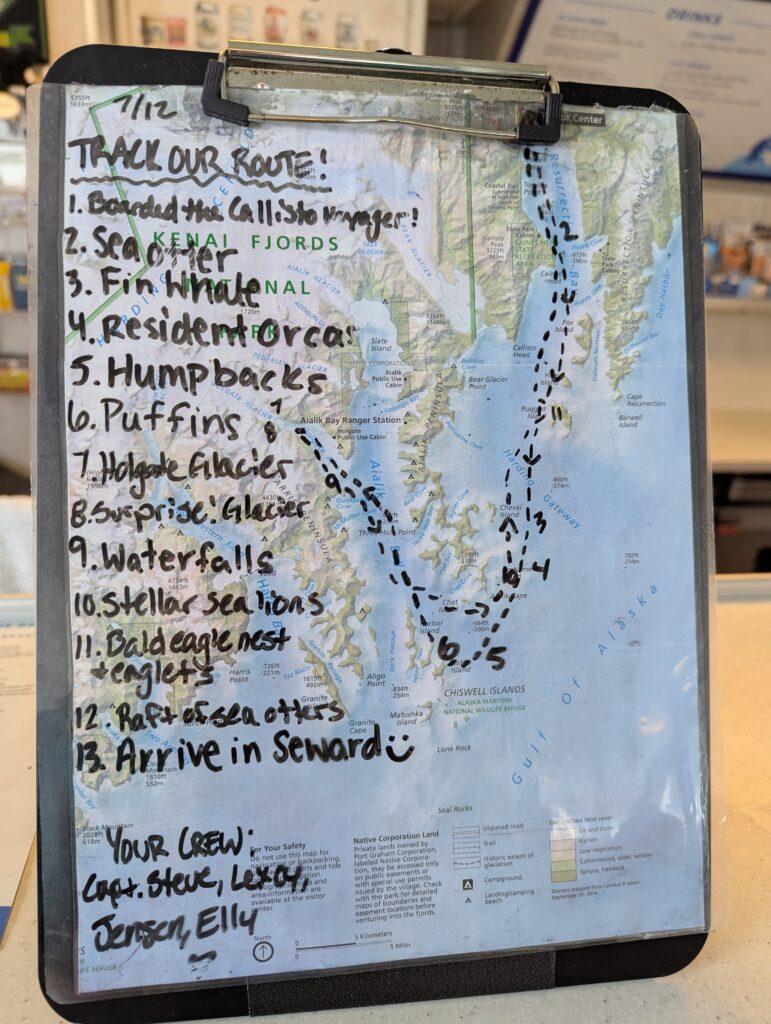 7/12
TRACK OUR ROUTE!
1. Boarded the Callisto Voyager!
2. Sea otter
3. Fin Whale
4. Resident orcas
5. Humpbacks
6. Puffins
7. Holgate Glacier
8. Surprise! Glacier
9. Waterfalls
10. Stellar sea lions
11. Bald eagle nest
+ eaglets
12. Raft of sea otters
13. Arrive in Seward
YOUR CREW:
Capt. Steve,
Jensen, Elly
DRINKS
KENAI FJORDS
NATIONAL
PARK
Resurrection Bay
RESURRECTION PENINSULA
Day Harbor
BEAR GLACIER
AIALIK GLACIER
PEDERSEN GLACIER
HOLGATE GLACIER
Slate
Island
Aialik
Public Use
Cabin
Coleman Bay
Aialik Bay Ranger Station
Holgate
Public Use Cabin
AIALIK PENINSULA
Bulldog
Cove
Bear Glacier
Point
Callisto
Head
Callisto
Peak
3223ft
983m
Fox
Island
Cape
Resurrection
Barwell
Island
Harding Gateway
-900ft
-274m
Cheval
Island
702ft
-214m
Three Hole Point
Harris
Point
-726ft
-221m
1615ft
492m
Granite
Cape
Aligo
Point
-834ft
-254m
Matushka
Island
-984ft
-300m
CHISWELL ISLANDS
ALASKA MARITIME
NATIONAL WILDLIFE REFUGE
Lone Rock
Seal Rocks
Gulf Of Alaska
Black Mountain
2028ft
618m
1810ft
552m
For Your Safety
Do not use this map for
Native Corporation Land
Private lands owned by
Port Graham Corporation,
labeled Native Corpora-
tion, may be accessed only
on public easements or
with special use permits
issued by the village. Check
with the park for detailed
maps of boundaries and
easement locations before
venturing into the fjords.
Unpaved road
Trail
Historic extent of
glaciation
Campground
Landing/camping
beach
Generalized land cover
Ice and snow
Barren
Low vegetation
Cottonwood, alder, willow
Spruce, hemlock
Glaciers mapped from Landsat 8 taken
September 25, 2014.
North
0
5 Kilometers
0
5 Miles
2
11
3
4
5
6
7
8
9